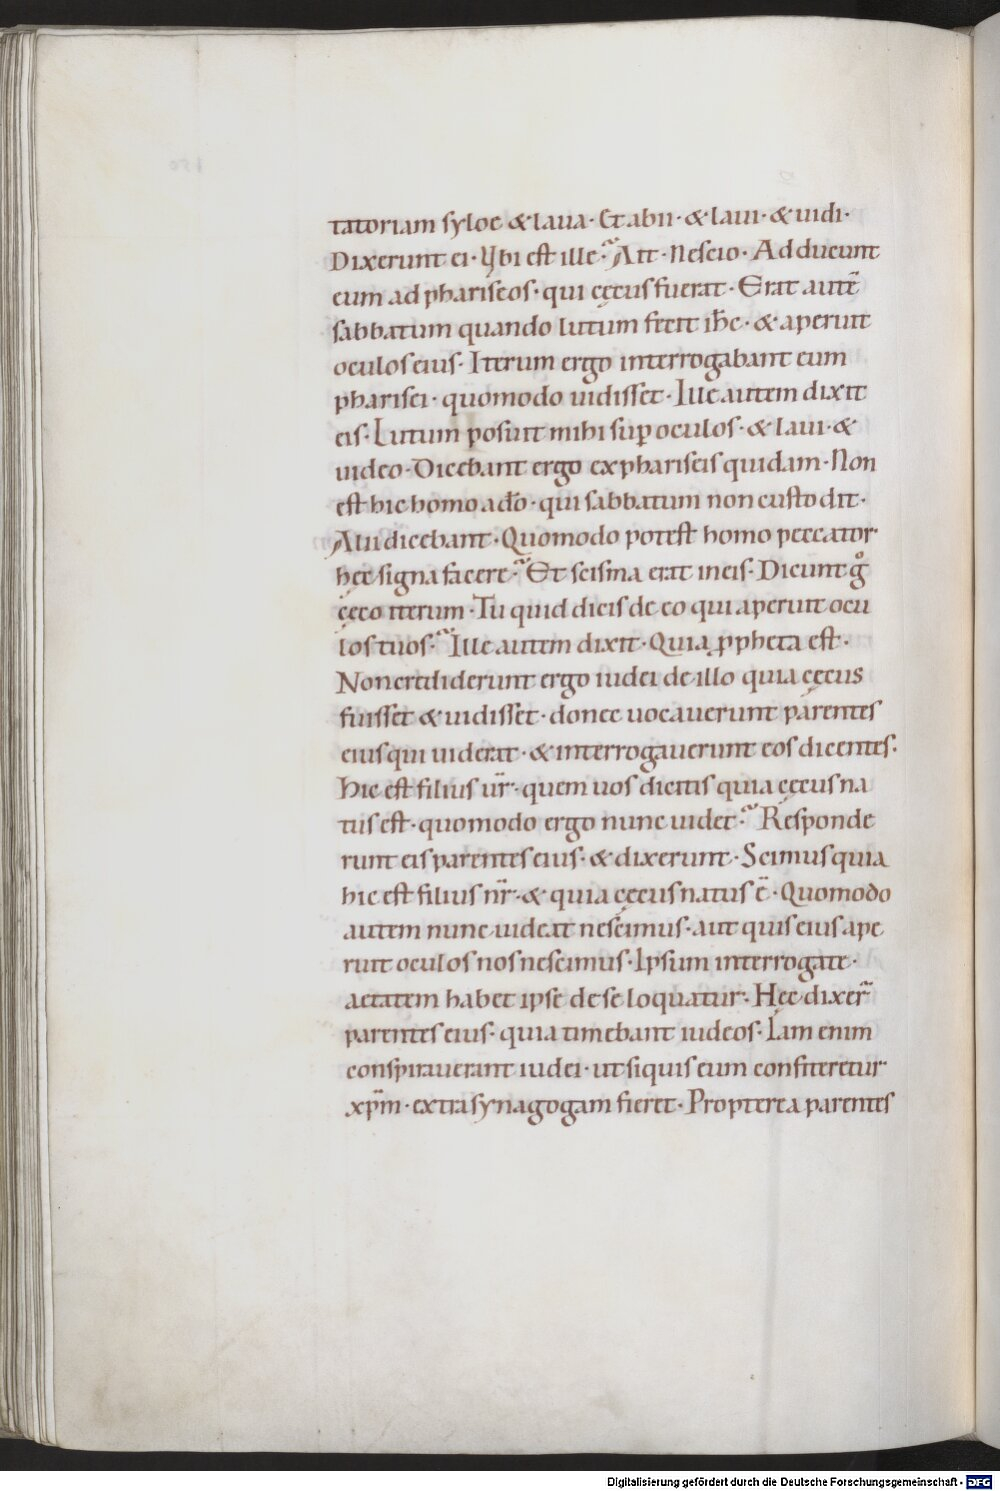 tatoriam syloe & laua· Et abii· & laui· & uidi·
Dixerunt ei· Ubi est ille· Ait· Nescio· Adducunt
eum ad phariseos· qui cęcus fuerat· Erat autē
sabbatum quando lutum fecit ihc̄· & aperuit
oculos eius· Iterum ergo interrogabant eum
pharisei· quomodo uidisset· Ille autem dixit
eis· Lutum posuit mihi sup oculos· & laui· &
uideo· Dicebant ergo ex phariseis quidam· Non
est hic homo a dō· qui sabbatum non custodit·
Alii dicebant· Quomodo potest homo peccator
hęc signa facere· Et scisma erat in eis· Dicunt gͦ
cęco iterum· Tu quid dicis de eo qui aperuit ocu
los tuos· Ille autem dixit· Quia ꝓpheta est·
Non crediderunt ergo iudei de illo quia cęcus
fuisset & uidisset· donec uocauerunt parentes
eius qui uiderat· & interrogauerunt eos dicentes·
Hic est filius ur̄· quem uos dicitis quia cęcus na
tus est· quomodo ergo nunc uidet· Responde
runt eis parentes eius· & dixerunt· Scimus quia
hic est filius nr̄· & quia cęcus natus ē· Quomodo
autem nunc uideat nescimus· aut quis eius ape
ruit oculos nos nescimus· Ipsum interrogate·
aetatem habet ipse de se loquatur· Hęc dixer̄
parentes eius· quia timebant iudeos· Iam enim
conspirauerant iudei· ut siquis eum confiteretur
xp̄m· extra synagogam fieret· Propterea parentes
Digitalisierung gefördert durch die Deutsche Forschungsgemeinschaft - DFG